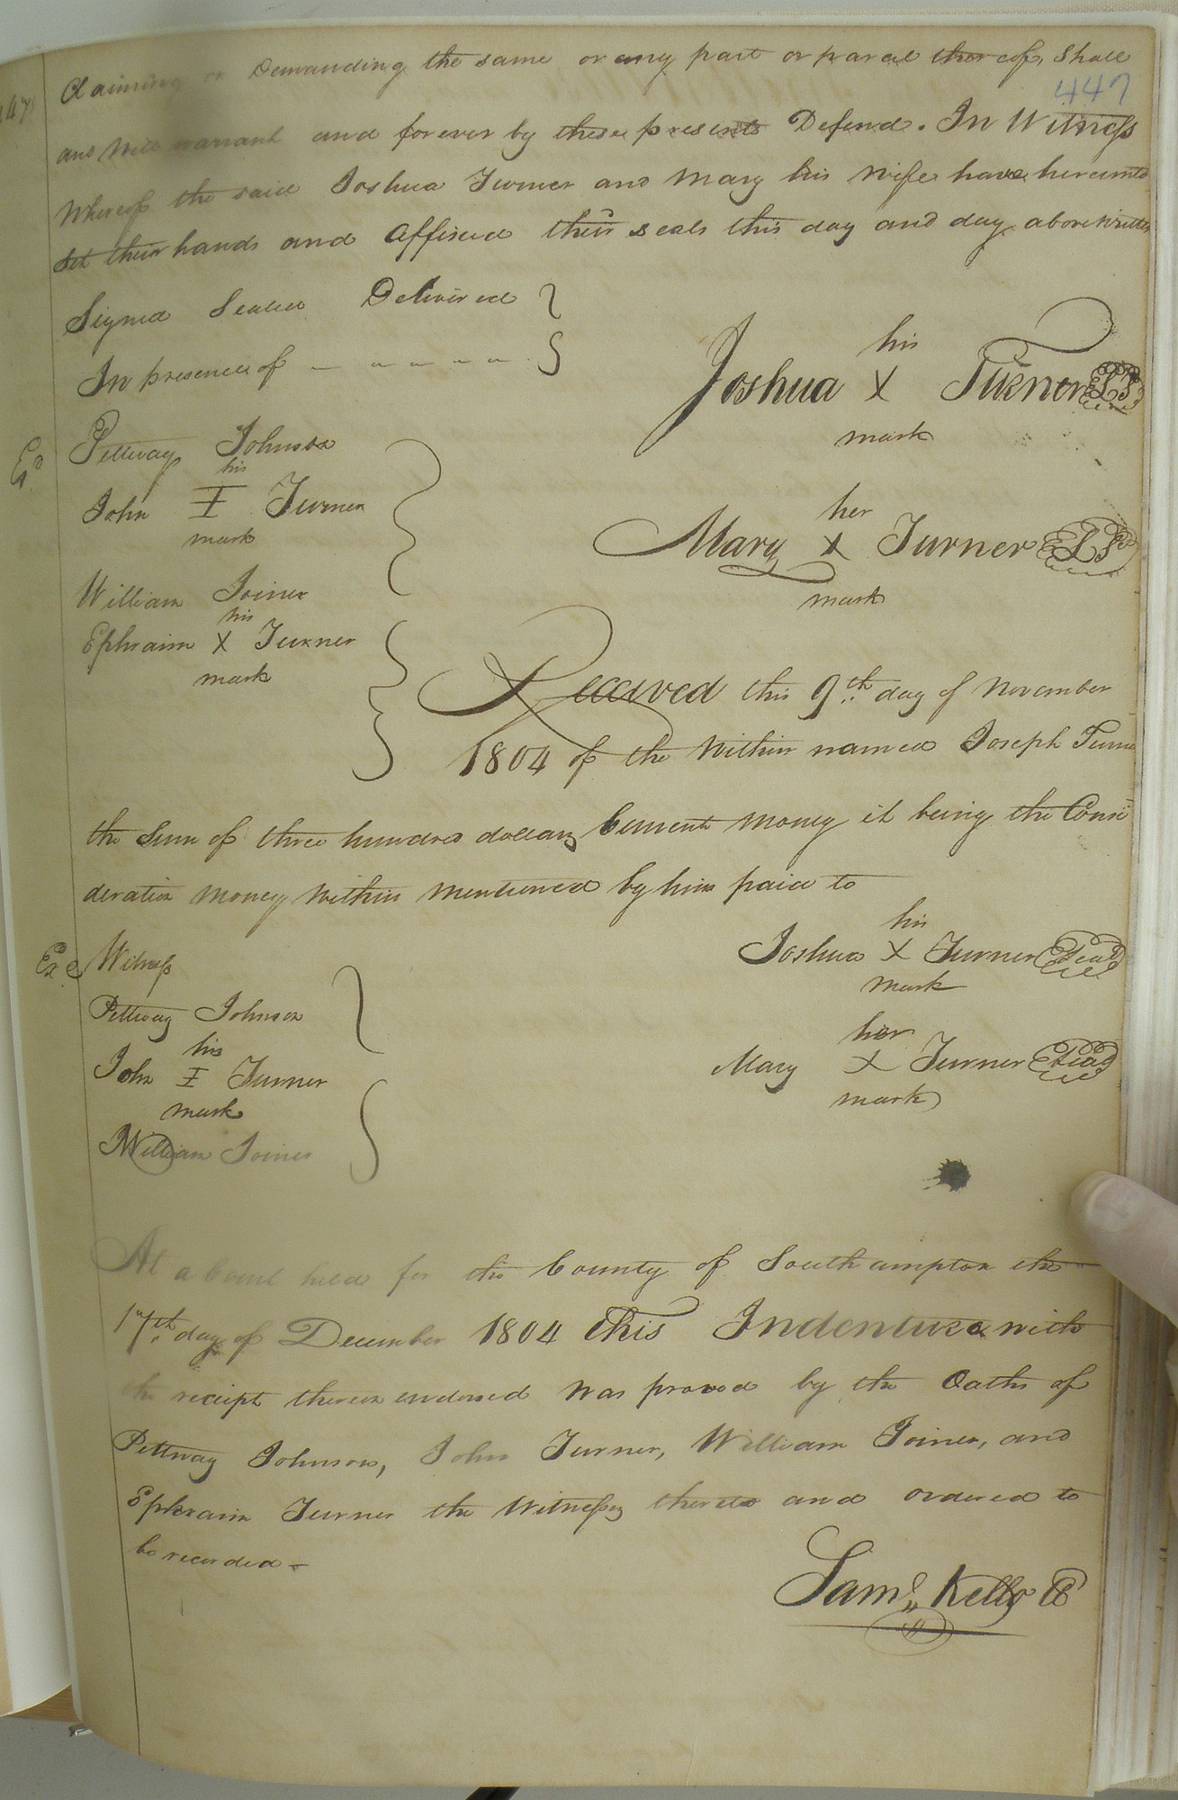 Claiming or Demanding the same or any part or parcel thereof, Shall
447
and will warrant and forever by these presents Defend. In Witness
Whereof the said Joshua Turner and Mary his Wife have hereunto
set their hands and affixed their seals this day and day above written
Signed Sealed Delivered
In presence of
his
Joshua X Turner LS
mark
Exd
Pettway Johnson
his
John I Turner
mark
her
Mary X Turner LS
mark
William Joiner
his
Ephraim X Turner
mark
Received this 9th day of November
1804 of the Within named Joseph Turner
the Sum of three hundred dollars Current money it being the Consi
deration money within mentioned by him paid to
his
Joshua X Turner Seal
mark
Exd
Witness
Pettway Johnson
his
John I Turner
mark
her
Mary X Turner Seal
mark
William Joiner
At a Court held for the County of Southampton the
17th day of December 1804 this Indenture with
the receipt thereon endorsed was proved by the Oaths of
Pettway Johnson, John Turner, William Joiner, and
Ephraim Turner the Witnesses thereto and ordered to
be recorded
Saml. Kello CC